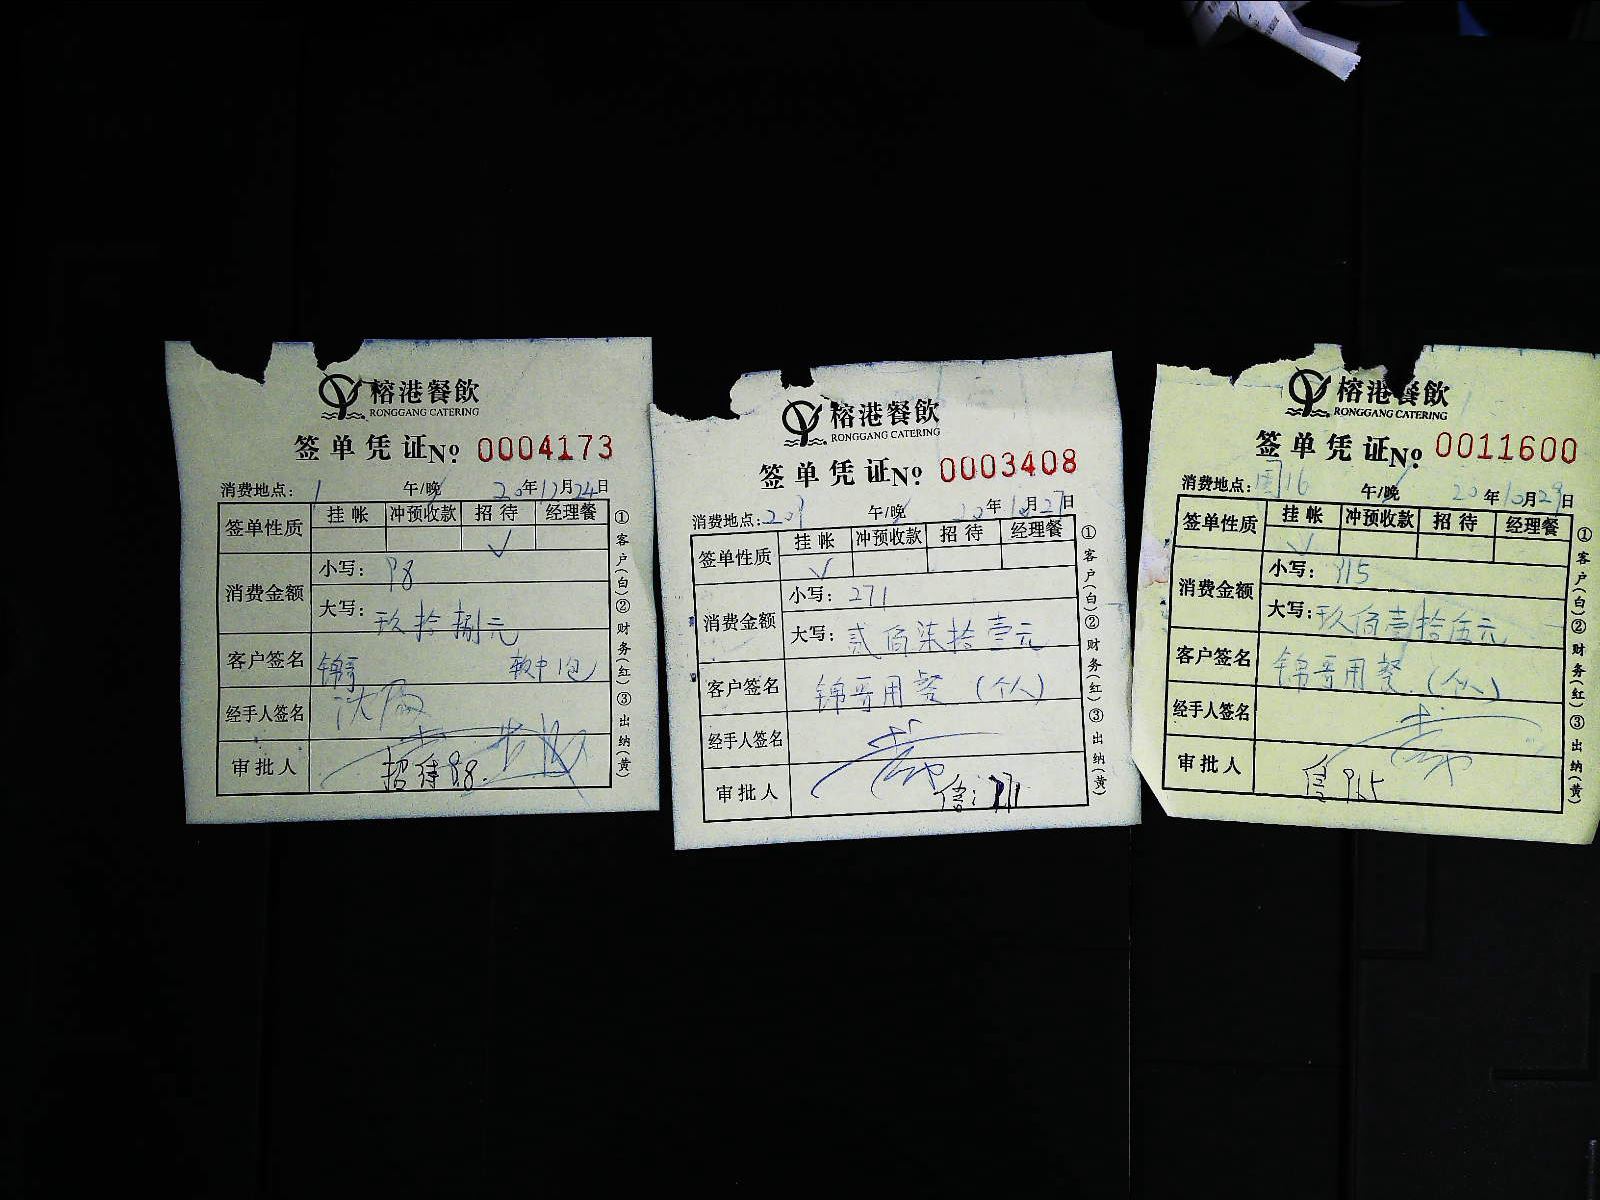 榕港餐飲
RONGGANG CATERING
签单凭证 No 0004173
消费地点: 1 午/晚 20年12月24日
签单性质 挂帐 冲预收款 招待 经理餐
✓
消费金额 小写: 98
大写: 玖拾捌元
客户签名 锦哥 软中1包
经手人签名
审批人 招待98.
①客户(白)②财务(红)③出纳(黄)
榕港餐飲
RONGGANG CATERING
签单凭证 No 0003408
消费地点: 201 午/晚 年10月27日
签单性质 挂帐 冲预收款 招待 经理餐
✓
消费金额 小写: 271
大写: 贰佰柒拾壹元
客户签名 锦哥用餐(个人)
经手人签名
审批人 271
①客户(白)②财务(红)③出纳(黄)
榕港餐飲
RONGGANG CATERING
签单凭证 No 0011600
消费地点: 围16 午/晚 20年10月29日
签单性质 挂帐 冲预收款 招待 经理餐
✓
消费金额 小写: 915
大写: 玖佰壹拾伍元
客户签名 锦哥用餐.(个人)
经手人签名
审批人 915
①客户(白)②财务(红)③出纳(黄)